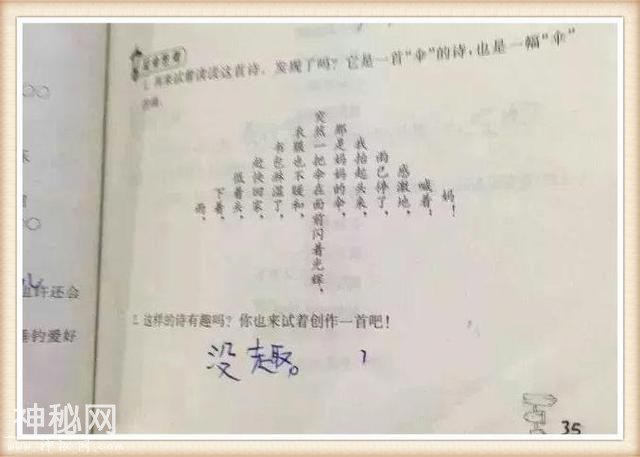 1. 再来试着读读这首诗，发现了吗？它是一首“伞”的诗，也是一幅“伞”
的画。
雨，
下着，
低着头，
赶快回家，
书包淋湿了，
衣服也不暖和，
突然一把伞在面前闪着光辉，
那是妈妈的伞，
我抬起头来，
雨已停了，
感激地，
喊着：
妈！
2. 这样的诗有趣吗？你也来试着创作一首吧！
没趣。
许还会
钓爱好
35
神秘网